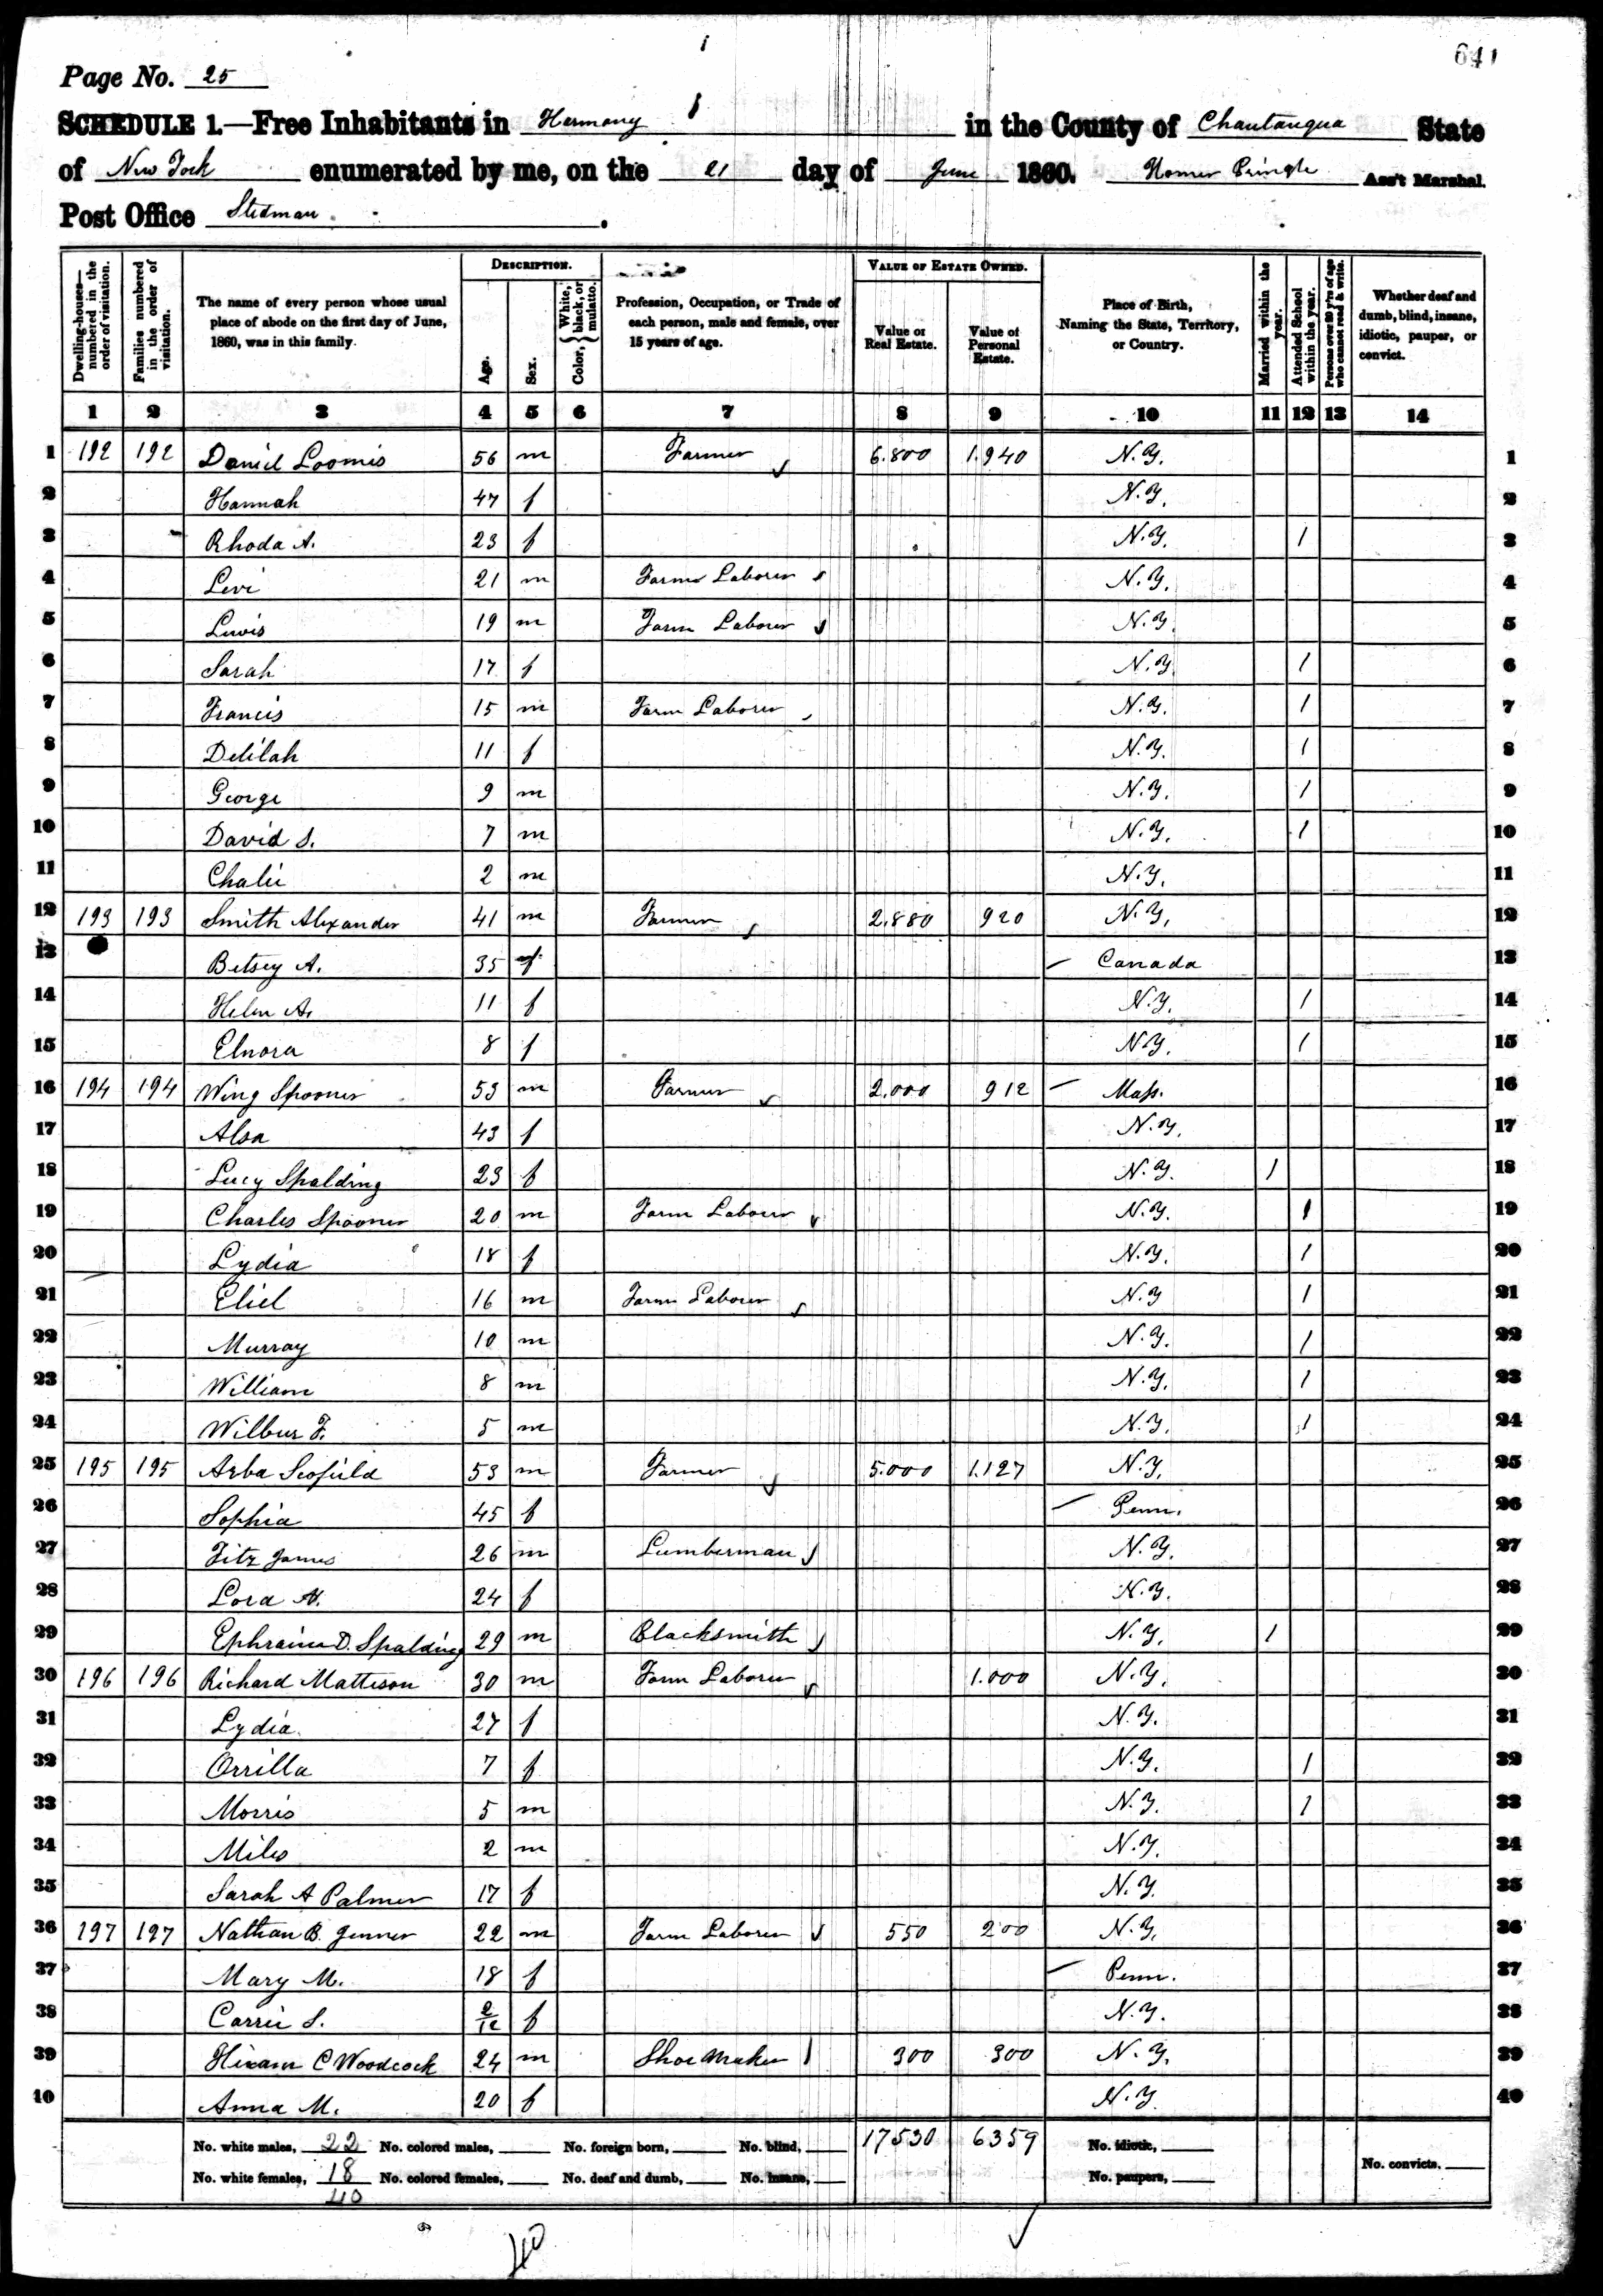 641
Page No. 25
SCHEDULE 1.—Free Inhabitants in Harmony in the County of Chautauqua State
of New York enumerated by me, on the 21 day of June 1860. Homer Pringle Ass't Marshal.
Post Office Stedman.
Dwelling-houses—numbered in the order of visitation.
Families numbered in the order of visitation.
The name of every person whose usual place of abode on the first day of June, 1860, was in this family.
DESCRIPTION.
Age.
Sex.
Color, { White, black, or mulatto.
Profession, Occupation, or Trade of each person, male and female, over 15 years of age.
VALUE OF ESTATE OWNED.
Value of Real Estate.
Value of Personal Estate.
Place of Birth, Naming the State, Territory, or Country.
Married within the year.
Attended School within the year.
Persons over 20 y'rs of age who cannot read & write.
Whether deaf and dumb, blind, insane, idiotic, pauper, or convict.
1 2 3 4 5 6 7 8 9 10 11 12 13 14
1 192 192 Daniel Loomis 56 m Farmer 6.800 1.940 N.Y. 1
2 Hannah 47 f N.Y. 2
3 Rhoda A. 23 f N.Y. 1 3
4 Levi 21 m Farm Laborer N.Y. 4
5 Lewis 19 m Farm Laborer N.Y. 5
6 Sarah 17 f N.Y. 1 6
7 Francis 15 m Farm Laborer N.Y. 1 7
8 Delilah 11 f N.Y. 1 8
9 George 9 m N.Y. 1 9
10 David S. 7 m N.Y. 1 10
11 Chalie 2 m N.Y. 11
12 193 193 Smith Alexander 41 m Farmer 2.880 920 N.Y. 12
13 Betsey A. 35 f Canada 13
14 Helen A. 11 f N.Y. 1 14
15 Elnora 8 f N.Y. 1 15
16 194 194 Wing Spooner 53 m Farmer 2.000 912 Mass. 16
17 Alsa 43 f N.Y. 17
18 Lucy Spalding 23 f N.Y. 1 18
19 Charles Spooner 20 m Farm Laborer N.Y. 1 19
20 Lydia 18 f N.Y. 1 20
21 Eliel 16 m Farm Laborer N.Y 1 21
22 Murray 10 m N.Y. 1 22
23 William 8 m N.Y. 1 23
24 Wilbur F. 5 m N.Y. 1 24
25 195 195 Arba Scofield 53 m Farmer 5.000 1.127 N.Y. 25
26 Sophia 45 f Penn. 26
27 Fitz James 26 m Lumberman N.Y. 27
28 Lora A. 24 f N.Y. 28
29 Ephraim D. Spalding 29 m Blacksmith N.Y. 1 29
30 196 196 Richard Mattison 30 m Farm Laborer 1.000 N.Y. 30
31 Lydia 27 f N.Y. 31
32 Orrilla 7 f N.Y. 1 32
33 Morris 5 m N.Y. 1 33
34 Miles 2 m N.Y. 34
35 Sarah A Palmer 17 f N.Y. 35
36 197 197 Nathan B. Jenner 22 m Farm Laborer 550 200 N.Y. 36
37 Mary M. 18 f Penn. 37
38 Carrie S. 2/12 f N.Y. 38
39 Hiram C Woodcock 24 m Shoe Maker 300 300 N.Y. 39
40 Anna M. 20 f N.Y. 40
No. white males, 22 No. colored males, No. foreign born, No. blind, 17530 6359 No. idiotic,
No. white females, 18 No. colored females, No. deaf and dumb, No. insane, No. paupers, No. convicts,
40
40